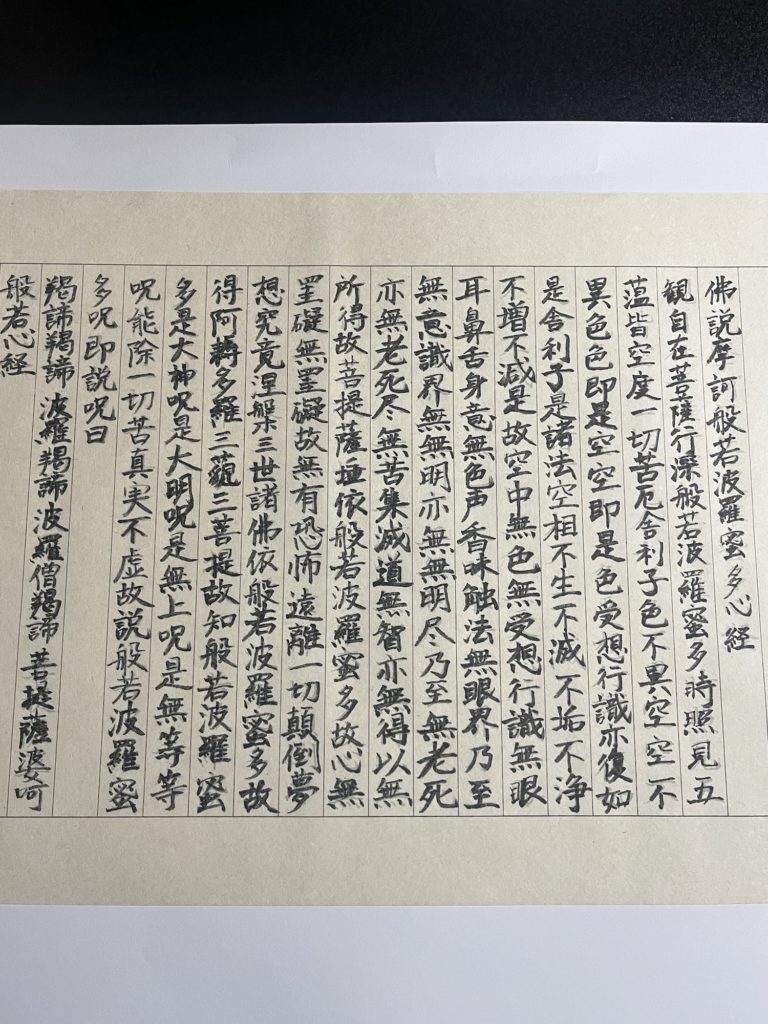 佛説摩訶般若波羅蜜多心経
観自在菩薩行深般若波羅蜜多時照見五
蘊皆空度一切苦厄舎利子色不異空空不
異色色即是空空即是色受想行識亦復如
是舎利子是諸法空相不生不滅不垢不浄
不増不減是故空中無色無受想行識無眼
耳鼻舌身意無色声香味触法無眼界乃至
無意識界無無明亦無無明尽乃至無老死
亦無老死尽無苦集滅道無智亦無得以無
所得故菩提薩埵依般若波羅蜜多故心無
罣礙無罣礙故無有恐怖遠離一切顛倒夢
想究竟涅槃三世諸佛依般若波羅蜜多故
得阿耨多羅三藐三菩提故知般若波羅蜜
多是大神呪是大明呪是無上呪是無等等
呪能除一切苦真実不虚故説般若波羅蜜
多呪即説呪曰
羯諦羯諦 波羅羯諦 波羅僧羯諦 菩提薩婆呵
般若心経